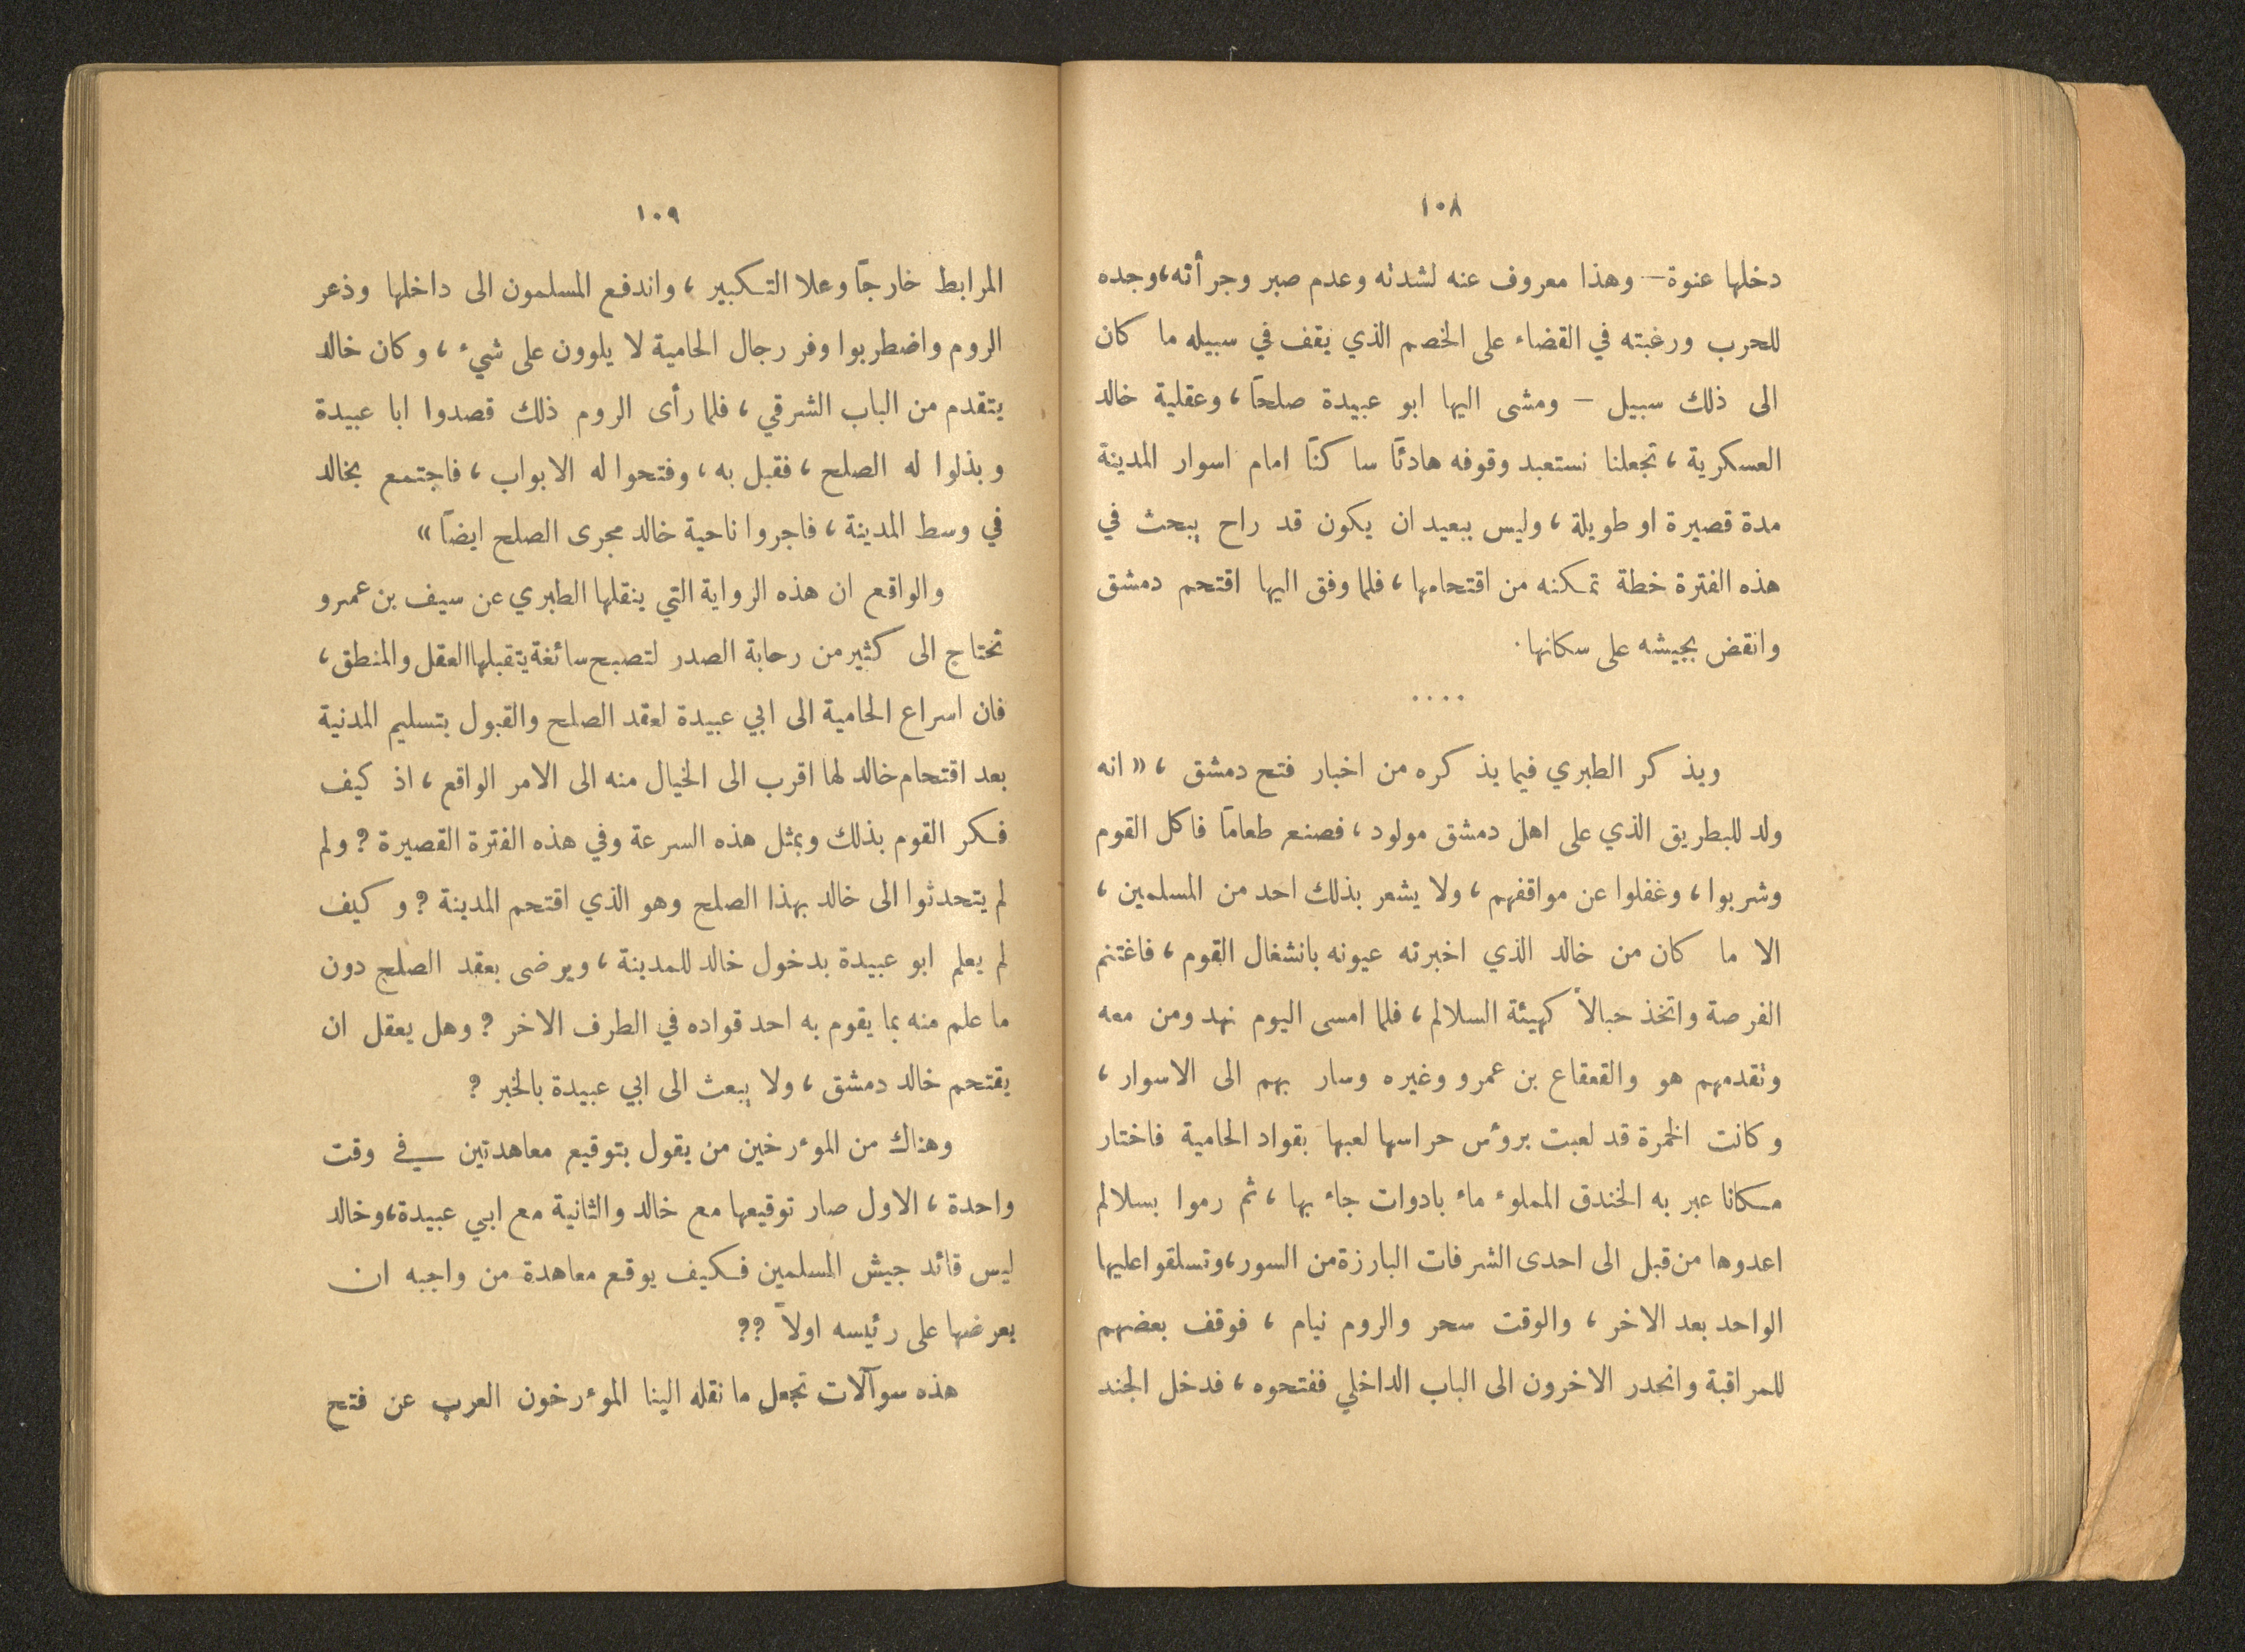 ١٠٨
دخلها عنوة — وهذا معروف عنه لشدته وعدم صبر وجرأته، وجده
للحرب ورغبته في القضاء على الخصم الذي يقف في سبيله ما كان
الى ذلك سبيل — ومشى اليها ابو عبيدة صلحاً، وعقلية خالد
العسكرية، تجعلنا نستعبد وقوفه هادئاً ساكناً امام اسوار المدينة
مدة قصيرة او طويلة، وليس ببعيد ان يكون قد راح يبحث في
هذه الفترة خطة تمكنه من اقتحامها، فلما وفق اليها اقتحم دمشق
وانقض بجيشه على سكانها.
....
ويذكر الطبري فيما يذكره من اخبار فتح دمشق، «انه
ولد للبطريق الذي على اهل دمشق مولود، فصنع طعاماً فاكل القوم
وشربوا، وغفلوا عن مواقفهم، ولا يشعر بذلك احد من المسلمين،
الا ما كان من خالد الذي اخبرته عيونه بانشغال القوم، فاغتنم
الفرصة واتخذ حبالاً كهيئة السلالم، فلما امسى اليوم نهد ومن معه
وتقدمهم هو والقعقاع بن عمرو وغيره وسار بهم الى الاسوار،
وكانت الخمرة قد لعبت برؤس حراسها لعبها بقواد الحامية فاختار
مكانا عبر به الخندق المملوء ماء بادوات جاء بها، ثم رموا بسلالم
اعدوها من قبل الى احدى الشرفات البارزة من السور، وتسلقوا عليها
الواحد بعد الاخر، والوقت سحر والروم نيام، فوقف بعضهم
للمراقبة وانحدر الاخرون الى الباب الداخلي ففتحوه، فدخل الجند
١٠٩
المرابط خارجاً وعلا التكبير، واندفع المسلمون الى داخلها وذعر
الروم واضطربوا وفر رجال الحامية لا يلوون على شيء، وكان خالد
يتقدم من الباب الشرقي، فلما رأى الروم ذلك قصدوا ابا عبيدة
وبذلوا له الصلح، فقبل به، وفتحوا له الابواب، فاجتمع بخالد
في وسط المدينة، فاجروا ناحية خالد مجرى الصلح ايضاً»
والواقع ان هذه الرواية التي ينقلها الطبري عن سيف بن عمرو
تحتاج الى كثير من رحابة الصدر لتصبح سائغة يتقبلها العقل والمنطق،
فان اسراع الحامية الى ابي عبيدة لعقد الصلح والقبول بتسليم المدنية
بعد اقتحام خالد لها اقرب الى الخيال منه الى الامر الواقع، اذ كيف
فكر القوم بذلك وبمثل هذه السرعة وفي هذه الفترة القصيرة؟ ولم
لم يتحدثوا الى خالد بهذا الصلح وهو الذي اقتحم المدينة؟ وكيف
لم يعلم ابو عبيدة بدخول خالد للمدينة، ويرضى بعقد الصلح دون
ما علم منه بما يقوم به احد قواده في الطرف الاخر؟ وهل يعقل ان
يقتحم خالد دمشق، ولا يبعث الى ابي عبيدة بالخبر؟
وهناك من الموءرخين من يقول بتوقيع معاهدتين في وقت
واحدة، الاول صار توقيعها مع خالد والثانية مع ابي عبيدة، وخالد
ليس قائد جيش المسلمين فكيف يوقع معاهدة من واجبه ان
يعرضها على رئيسه اولاً؟؟
هذه سوآلات تجعل ما نقله الينا الموءرخون العرب عن فتح